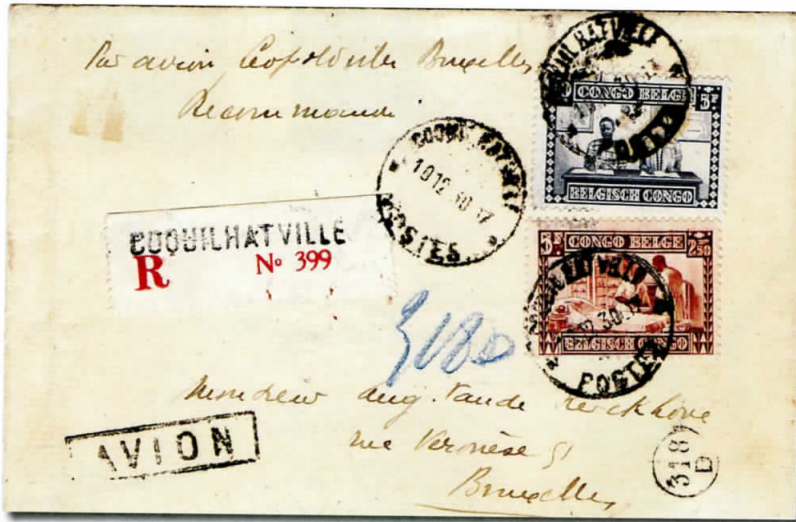 Par avion Léopoldville Bruxelles
Recommandé
COQUILHATVILLE
POSTES
CONGO BELGE 5F
BELGISCH CONGO
COQUILHATVILLE
10 12 30 17
POSTES
COQUILHATVILLE
R No 399
5F CONGO BELGE 2,50
BELGISCH CONGO
POSTES
3180
Monsieur Aug. Vande Kerckhove
rue Véronèse 51
Bruxelles
AVION
3187
D